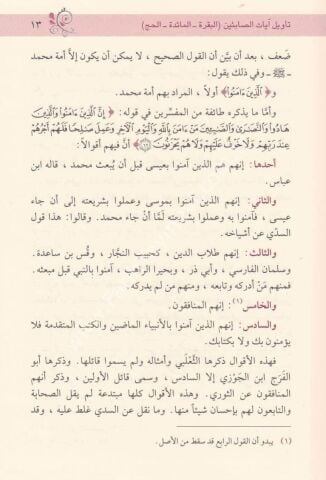 تأويل آيات الصابئين (البقرة ـ المائدة ـ الحج) ١٣
ضَعف، بعد أن بيَّن أن القول الصحيح، لا يمكن أن يكون إلا أمة محمد
ـ ﷺ ـ وفي ذلك يقول:
و﴿الَّذِينَ ءَامَنُوا﴾ أولاً، المراد بهم أمة محمد.
وأمّا ما يذكره طائفة من المفسِّرين في قوله: ﴿إِنَّ الَّذِينَ ءَامَنُوا وَالَّذِينَ
هَادُوا وَالنَّصَارَى وَالصَّابِئِينَ مَنْ ءَامَنَ بِاللَّهِ وَالْيَوْمِ الْآخِرِ وَعَمِلَ صَالِحًا فَلَهُمْ أَجْرُهُمْ
عِنْدَ رَبِّهِمْ وَلَا خَوْفٌ عَلَيْهِمْ وَلَا هُمْ يَحْزَنُونَ﴾ أنَّ فيهم أقوالاً:
أحدها: إنهم هم الذين آمنوا بعيسى قبل أن يُبعث محمد، قاله ابن
عباس.
والثاني: إنهم الذين آمنوا بموسى وعملوا بشريعته إلى أن جاء
عيسى، فآمنوا به وعملوا بشريعته لمَّا أن جاء محمد. وقالوا: هذا قول
السدي عن أشياخه.
والثالث: إنهم طلاب الدين، كحبيب النجَّار، وقُس بن ساعدة،
وسلمان الفارسي، وأبي ذر، وبحيرا الراهب، آمنوا بالنبي قبل مبعثه.
فمنهم مَنْ أدركه وتابعه، ومنهم من لم يدركه.
والخامس(١): إنهم المنافقون.
والسادس: إنهم الذين آمنوا بالأنبياء الماضين والكتب المتقدمة فلا
يؤمنون بك ولا بكتابك.
فهذه الأقوال ذكرها الثَّعْلَبي وأمثاله ولم يسموا قائلها. وذكرها أبو
الفَرَج ابن الجَوْزي إلا السادس، وسمى قائل الأولين، وذكر أنهم
المنافقون عن الثوري. وهذه الأقوال كلها مبتدعة لم يقل الصحابة
والتابعون لهم بإحسان شيئاً منها. وما نقل عن السدي غلط عليه، وقد
(١) يبدو أن القول الرابع قد سقط من الأصل.